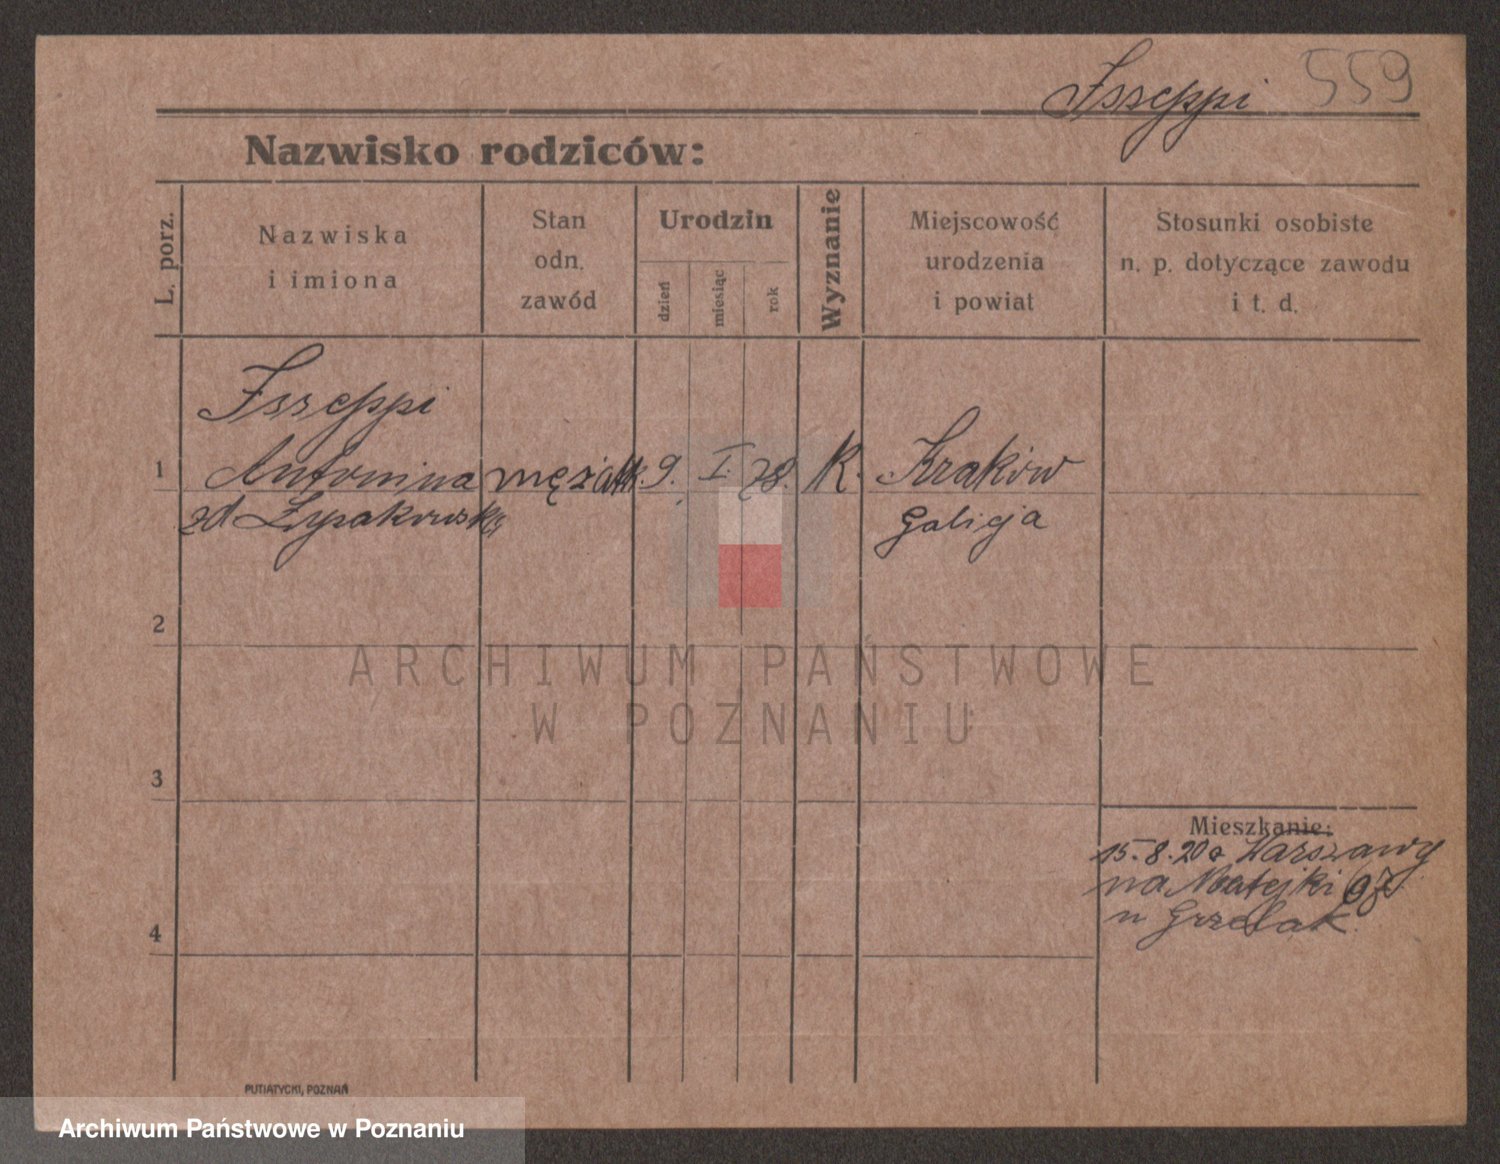 Isseppi 559
Nazwisko rodziców:
L. porz.
Nazwiska
i imiona
Stan
odn.
zawód
Urodzin
dzień
miesiąc
rok
Wyznanie
Miejscowość
urodzenia
i powiat
Stosunki osobiste
n. p. dotyczące zawodu
i t. d.
Isseppi
1 Antonina mężatk. 9. I. 78. K. Kraków
zd Łysakowska Galicja
2
ARCHIWUM PAŃSTWOWE
W POZNANIU
3
Mieszkanie:
15.8.20 z Warszawy
na Matejki
u Grzelak.
4
PUTIATYCKI, POZNAŃ
Archiwum Państwowe w Poznaniu